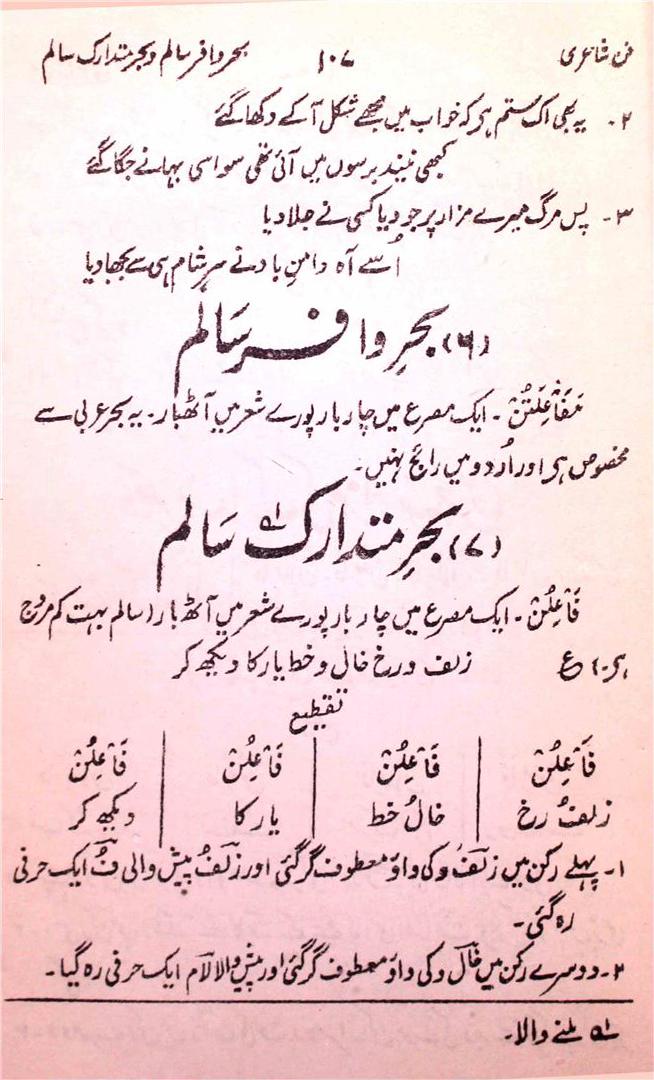 فن شاعری ۱۰۷ بحر وافر سالم و بحر متدارک سالم
۲۔ یہ بھی اک ستم ہی کہ خواب میں مجھے شکل آکے دکھا گئے
کبھی نیند برسوں میں آئی تھی سو اسی بہانے جگا گئے
۳۔ پس مرگ میرے مزار پر جو دیا کسی نے جلا دیا
اُسے آہ دامنِ باد نے سرِ شام ہی سے بجھا دیا
(۶) بحرِ وافر سَالم
مَفَاْعِلَتُنْ۔ ایک مصرع میں چار بار پورے شعر میں آٹھ بار۔ یہ بحر عربی سے
مخصوص ہی اور اُردو میں رائج نہیں۔
(۷) بحرِ متدارک ۱؎ سَالم
فَاْعِلُنْ۔ ایک مصرع میں چار بار پورے شعر میں آٹھ بار (سالم بہت کم مروج
ہی۔) ع زلف و رخ خال و خط یار کا دیکھ کر
تقطیع
فَاْعِلُنْ | فَاْعِلُنْ | فَاْعِلُنْ | فَاْعِلُنْ
زلفُ رخ | خالُ خط | یار کا | دیکھ کر
۱۔ پہلے رکن میں زلفُ و کی واوِ معطوف گر گئی اور زلفُ پیش والی فُ ایک حرفی
رہ گئی۔
۲۔ دوسرے رکن میں خال و کی واوِ معطوف گر گئی اور پیش والا لام ایک حرفی رہ گیا۔
۱؎ ملنے والا۔